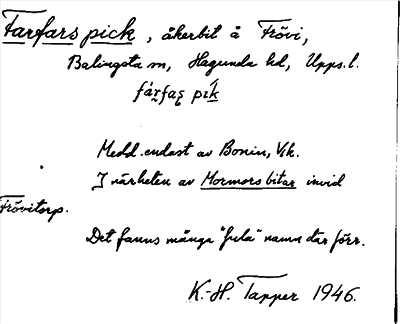 Farfars pick, åkerbit å Frövi,
Balingsta sn, Hagunda hd, Upps. l.
fárfas pík
Medd. endast av Bonin, Vik.
I närheten av Mormors bitar invid
Frövitorp.
Det fanns många "fula" namn där förr.
K.-H. Tapper 1946.